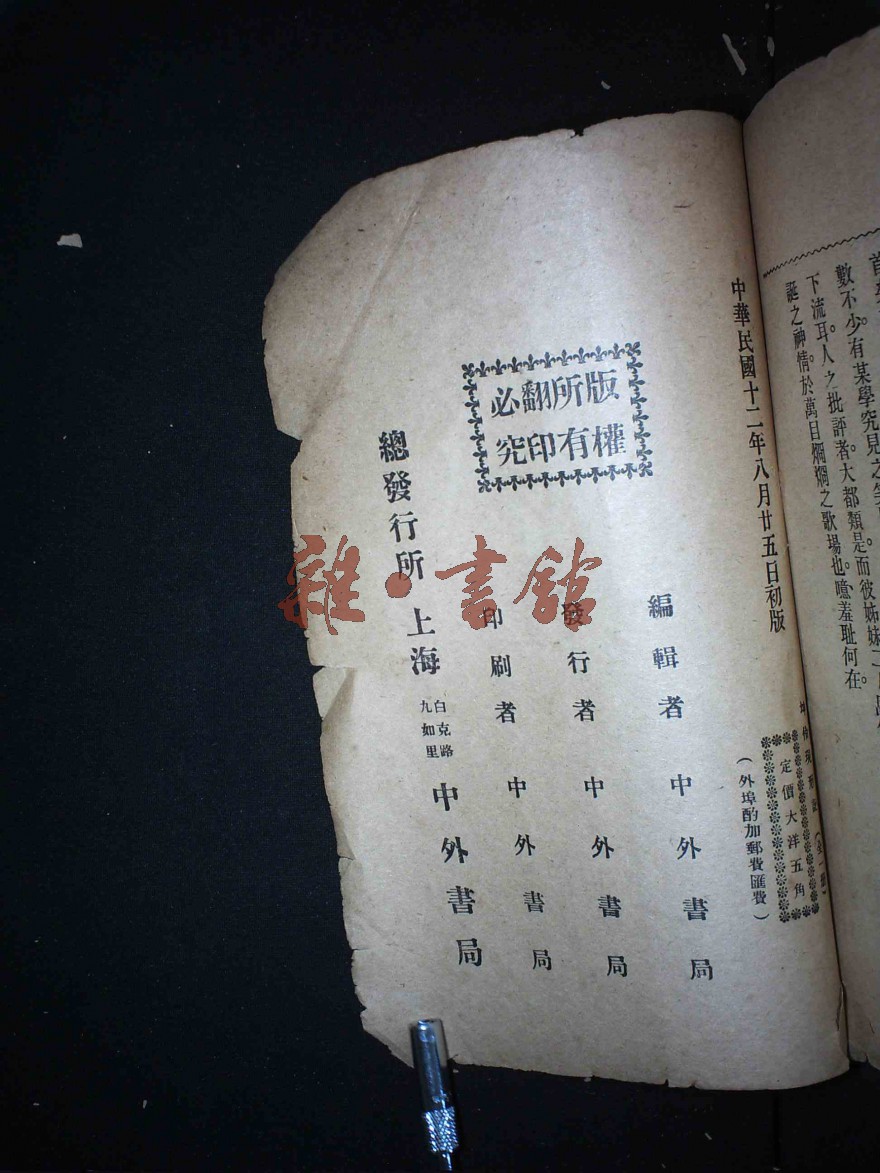 數不少。有某學究見之
而彼姊妹
下流耳。人之批評者。大都類是。
誕之神情。於萬目烱烱之歌場也。噫羞耻何在。
中華民國十二年八月廿五日初版
定價大洋五角
(外埠酌加郵費匯費)
版權所有
翻印必究
編輯者 中外書局
發行者 中外書局
印刷者 中外書局
總發行所 上海 白克路九如里 中外書局
雜·書館